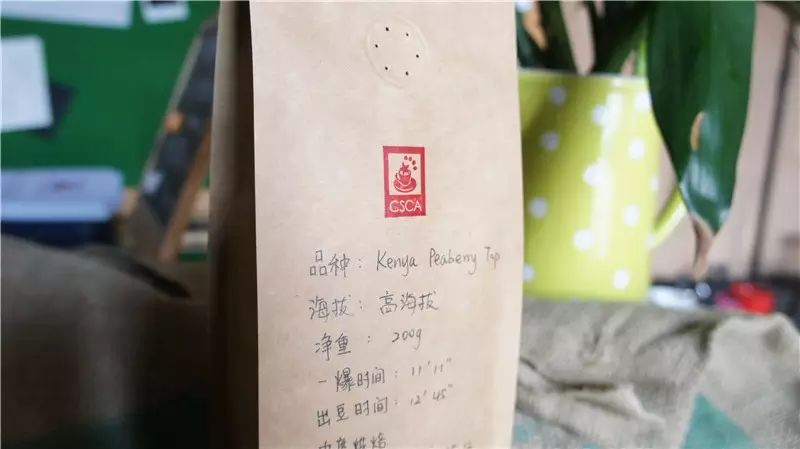 GSCA
品种：Kenya Peaberry Top
海拔：高海拔
净重：200g
一爆时间：11'11"
出豆时间：12'45"